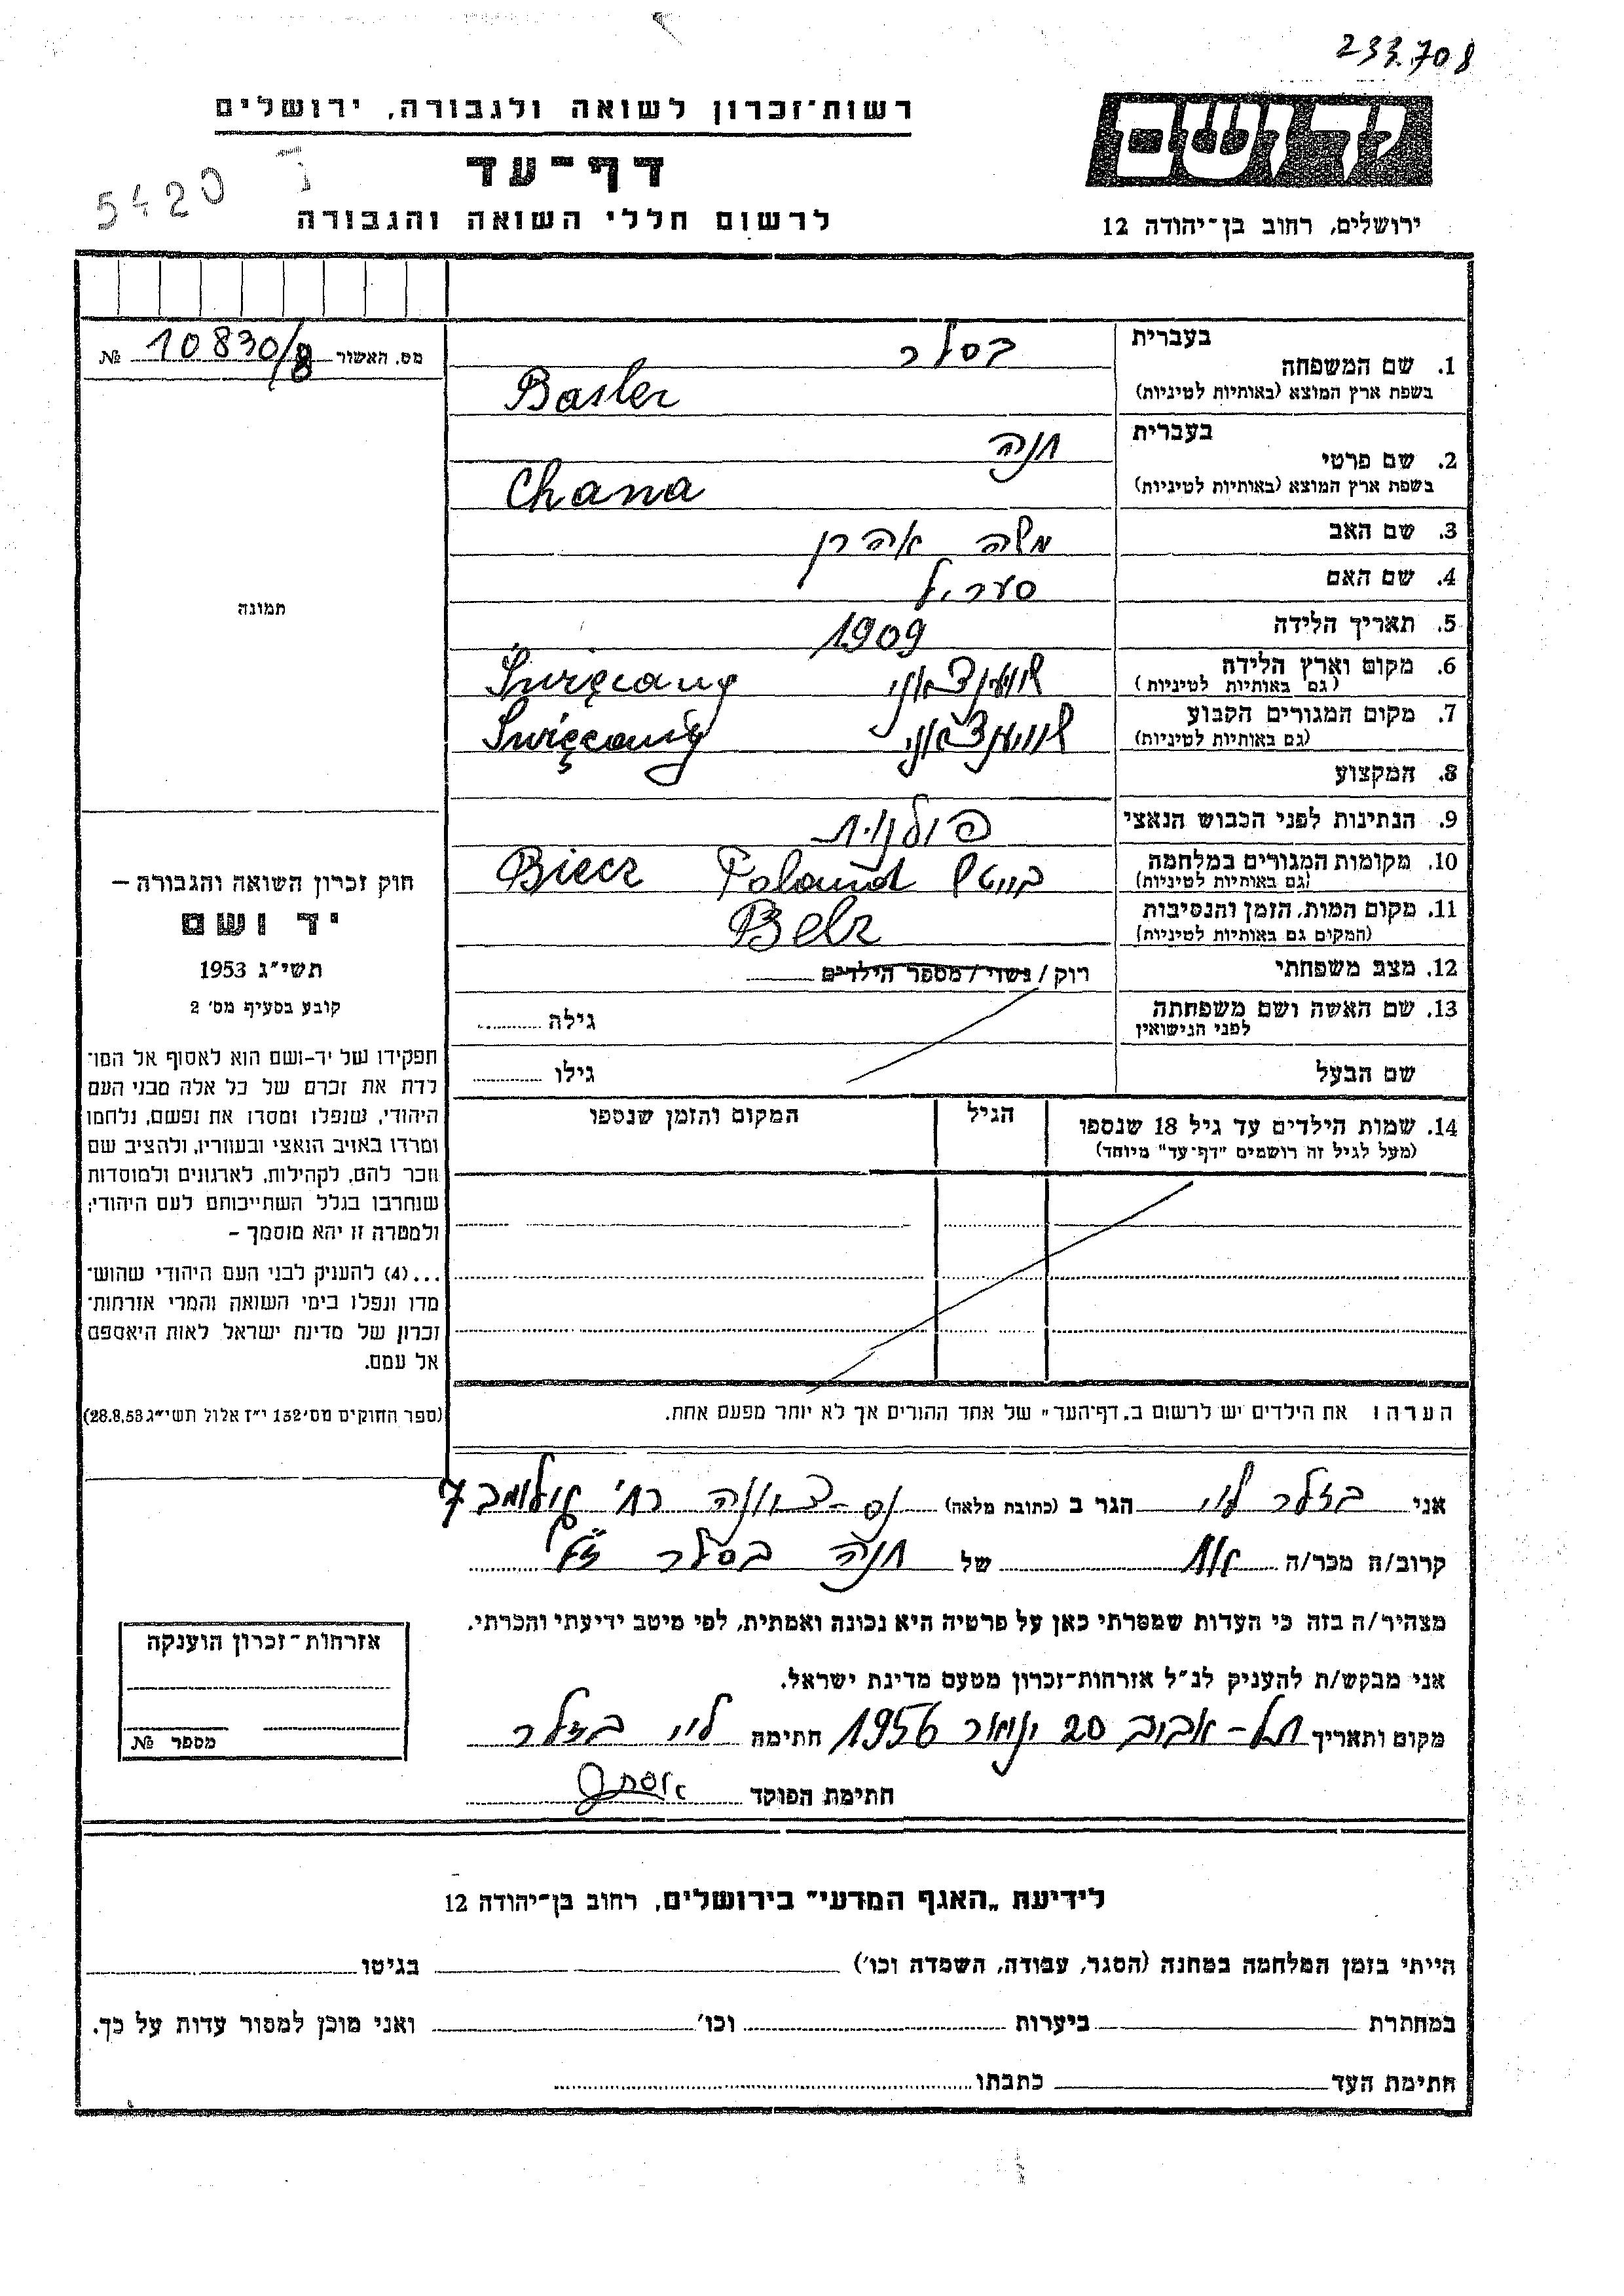 233.708
רשות־זכרון לשואה ולגבורה, ירושלים
ידושם
דף־עד
5420
לרשום חללי השואה והגבורה
ירושלים, רחוב בן־יהודה 12
מס. האשור 10830/8 №
בעברית בסלר
1. שם המשפחה
בשפת ארץ המוצא (באותיות לטיניות) Basler
בעברית חנה
2. שם פרטי
בשפת ארץ המוצא (באותיות לטיניות) Chana
3. שם האב משה אהרן
4. שם האם
5. תאריך הלידה 1909
6. מקום וארץ הלידה Święciany
(גם באותיות לטיניות)
7. מקום המגורים הקבוע Święciany
(גם באותיות לטיניות)
8. המקצוע
9. הנתינות לפני הכבוש הנאצי פולנית
10. מקומות המגורים במלחמה Poland Biecz
(גם באותיות לטיניות)
11. מקום המות, הזמן והנסיבות Belz
(המקום גם באותיות לטיניות)
12. מצב משפחתי רוק / נשוי / מספר הילדים
13. שם האשה ושם משפחתה גילה
לפני הנישואין
שם הבעל גילו
14. שמות הילדים עד גיל 18 שנספו הגיל המקום והזמן שנספו
(מעל לגיל זה רושמים "דף־עד" מיוחד)
הערה: את הילדים יש לרשום ב„דף־העד" של אחד ההורים אך לא יותר מפעם אחת.
תמונה
חוק זכרון השואה והגבורה –
יד ושם
תשי"ג 1953
קובע בסעיף מס' 2
תפקידו של יד-ושם הוא לאסוף אל המו־
לדת את זכרם של כל אלה מבני העם
היהודי, שנפלו ומסרו את נפשם, נלחמו
ומרדו באויב הנאצי ובעוזריו, ולהציב שם
וזכר להם, לקהילות, לארגונים ולמוסדות
שנחרבו בגלל השתייכותם לעם היהודי;
ולמטרה זו יהא מוסמך –
...(4) להעניק לבני העם היהודי שהוש־
מדו ונפלו בימי השואה והמרי אזרחות־
זכרון של מדינת ישראל לאות היאספם
אל עמם.
(ספר החוקים מס' 132 י"ז אלול תשי"ג 28.8.53)
אני בזלר לוי הגר ב (כתובת מלאה) נס-ציונה רח' 7
קרוב/ה מכר/ה אח של חנה בסלר ז"ל
מצהיר/ה בזה כי העדות שמסרתי כאן על פרטיה היא נכונה ואמתית, לפי מיטב ידיעתי והכרתי.
אני מבקש/ת להעניק לנ"ל אזרחות־זכרון מטעם מדינת ישראל.
מקום ותאריך תל-אביב 20 ינואר 1956 חתימה לוי בזלר
חתימת הפוקד
אזרחות־זכרון הוענקה
מספר №
לידיעת „האגף המדעי" בירושלים, רחוב בן־יהודה 12
הייתי בזמן המלחמה במחנה (הסגר, עבודה, השמדה וכו') בגיטו
במחתרת ביערות וכו' ואני מוכן למסור עדות על כך.
חתימת העד כתבתו